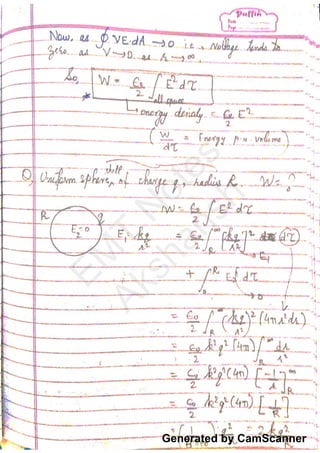 Puffin
Date
Page
Now, as ∮ VE.dA → 0 i.e., Voltage tends to
zero. as V → 0. as r → ∞.
So, W = ε₀/2 ∫all space E² dτ
* → energy density = ε₀/2 E²
( W/dτ = Energy per volume )
Q, Uniform sphere shell of charge q, radius R W = ?
R q W = ε₀/2 ∫ E² dτ
E₂=0 E₁ = kq/r² = ε₀/2 ∫R^∞ [kq/r²]² (dτ)
→ E₁
+ ∫₀^R E₂ dτ
→ 0
= ε₀/2 ∫R^∞ (kq/r²)² (4πr²dr)
= ε₀/2 k²q² (4π) ∫R^∞ dr/r²
= ε₀/2 k²q² (4π) [-1/r]R^∞
= ε₀/2 k²q² (4π) [1/R]
EMT Notes
Generated by CamScanner